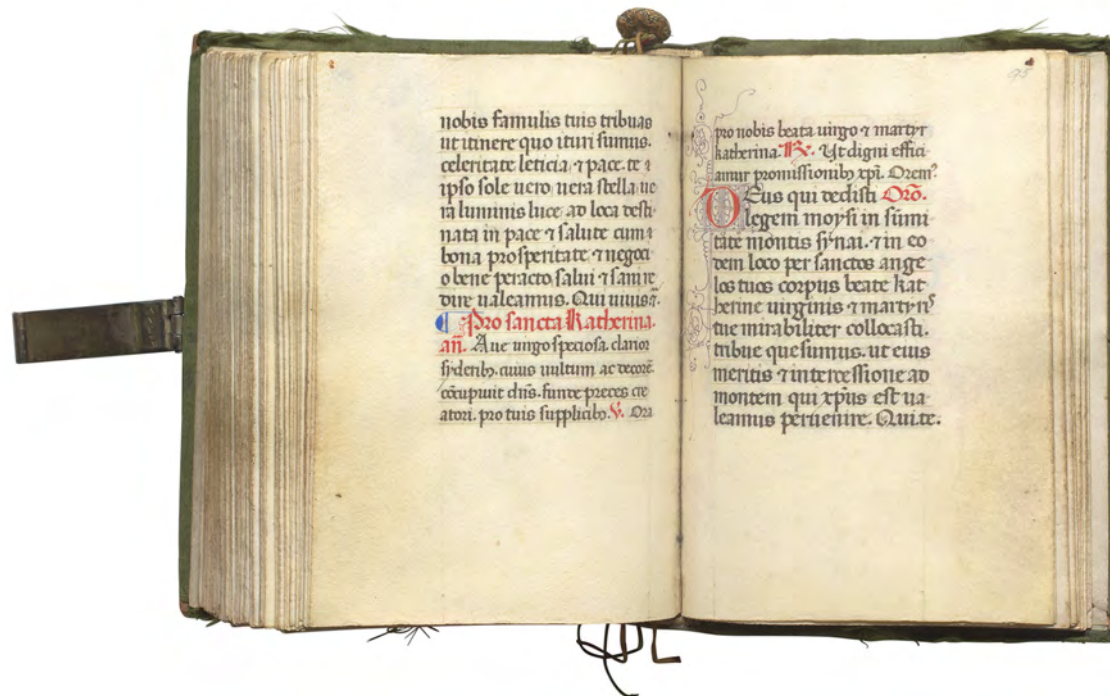 nobis famulis tuis tribuas
ut itinere quo ituri sumus.
celeritate leticia ⁊ pace. te ⁊
ipso sole uero uera stella ue
ra luminis luce ad loca desti
nata in pace ⁊ salute cum ⁊
bona prosperitate ⁊ negoci
o bene peracto salui ⁊ sani re
dire ualeamus. Qui uiuis ⁊.
Pro sancta Katherina.
añ. Aue uirgo speciosa. clarior
syderibꝫ. cuius uultum ac decorē.
cōcupiuit dñs. funde preces cre
atori. pro tuis supplicibꝫ. V. Ora
95
pro nobis beata uirgo ⁊ martyr
katherina. R. Ut digni effici
amur promissionibꝫ xpi. Orem⁹.
DEus qui dedisti Orō.
legem moysi in sūmi
tate montis synai. ⁊ in eo
dem loco per sanctos ange
los tuos corpus beate kat
herine uirginis ⁊ martyris
tue mirabiliter collocasti.
tribue quesumus. ut eius
meritis ⁊ intercessione ad
montem qui xp̄us est ua
leamus peruenire. Qui te.